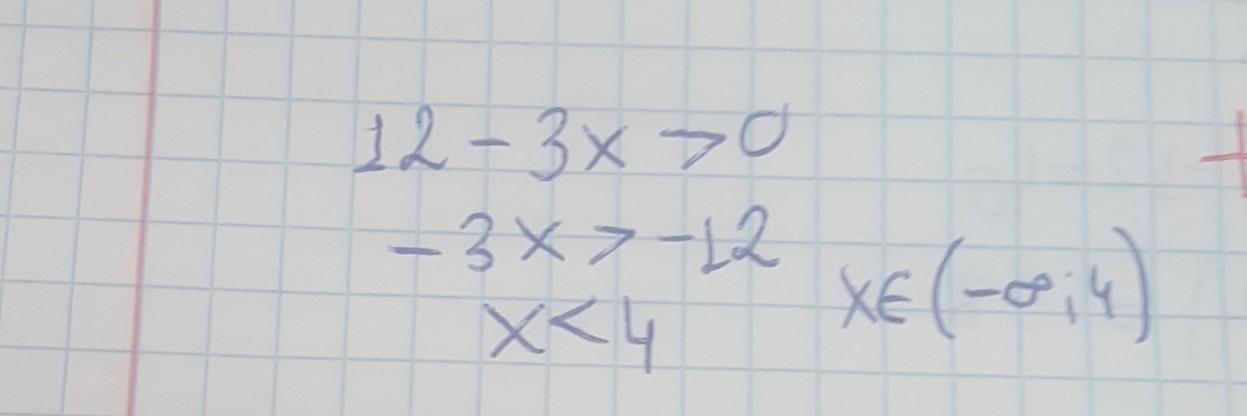 12 - 3x > 0
- 3x > -12
x < 4
x ∈ (-∞; 4)
+